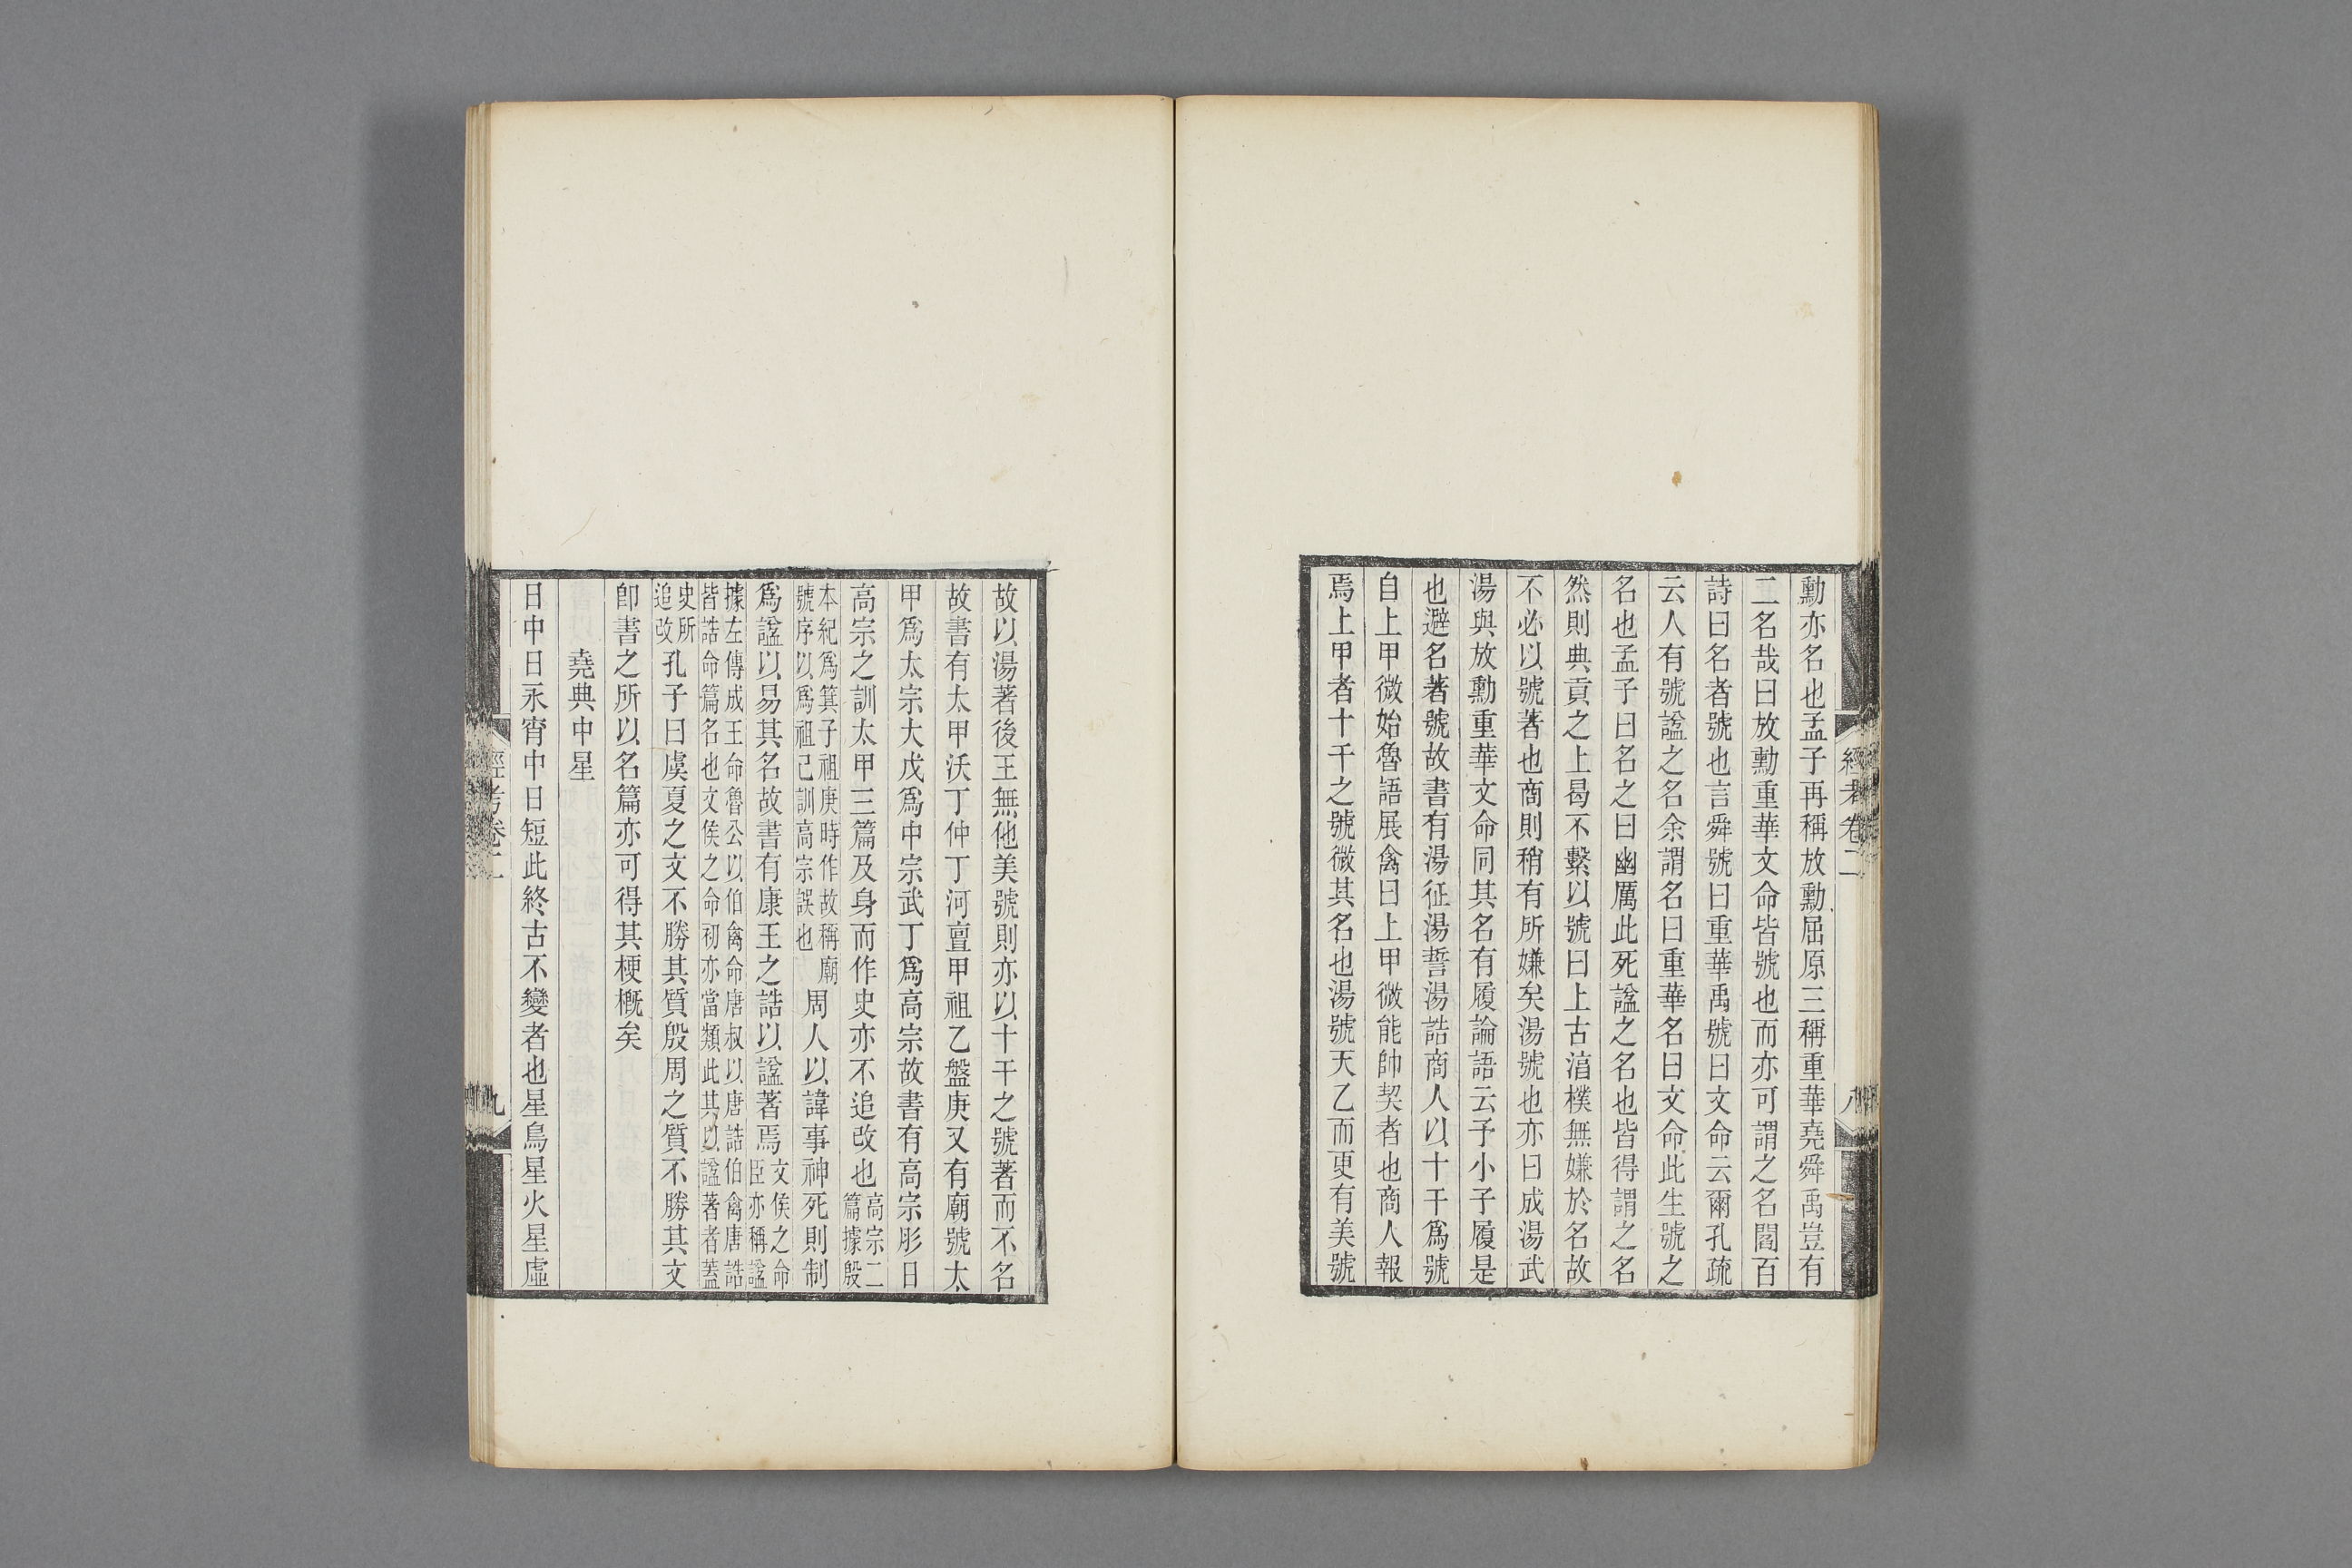 經考卷二
八
勳亦名也孟子再稱放勳屈原三稱重華堯舜禹豈有
二名哉曰放勳重華文命皆號也而亦可謂之名閻百
詩曰名者號也言舜號曰重華禹號曰文命云爾孔疏
云人有號諡之名余謂名曰重華名曰文命此生號之
名也孟子曰名之曰幽厲此死諡之名也皆得謂之名
然則典貢之上曷不繫以號曰上古湻樸無嫌於名故
不必以號著也商則稍有所嫌矣湯號也亦曰成湯武
湯與放勳重華文命同其名有履論語云予小子履是
也避名著號故書有湯征湯誓湯誥商人以十干爲號
自上甲微始魯語展禽曰上甲微能帥契者也商人報
焉上甲者十干之號微其名也湯號天乙而更有美號
故以湯著後王無他美號則亦以十干之號著而不名
故書有太甲沃丁仲丁河亶甲祖乙盤庚又有廟號太
甲爲太宗大戊爲中宗武丁爲高宗故書有高宗肜日
高宗之訓太甲三篇及身而作史亦不追改也高宗二篇據殷
本紀爲箕子祖庚時作故稱廟號序以爲祖己訓高宗誤也周人以諱事神死則制
爲諡以易其名故書有康王之誥以諡著焉文侯之命臣亦稱諡
據左傳成王命魯公以伯禽命唐叔以唐誥伯禽唐誥皆誥命篇名也文侯之命初亦當類此其以諡著者蓋
史所追改孔子曰虞夏之文不勝其質殷周之質不勝其文
卽書之所以名篇亦可得其梗概矣
堯典中星
日中日永宵中日短此終古不變者也星鳥星火星虛
經考卷二
九